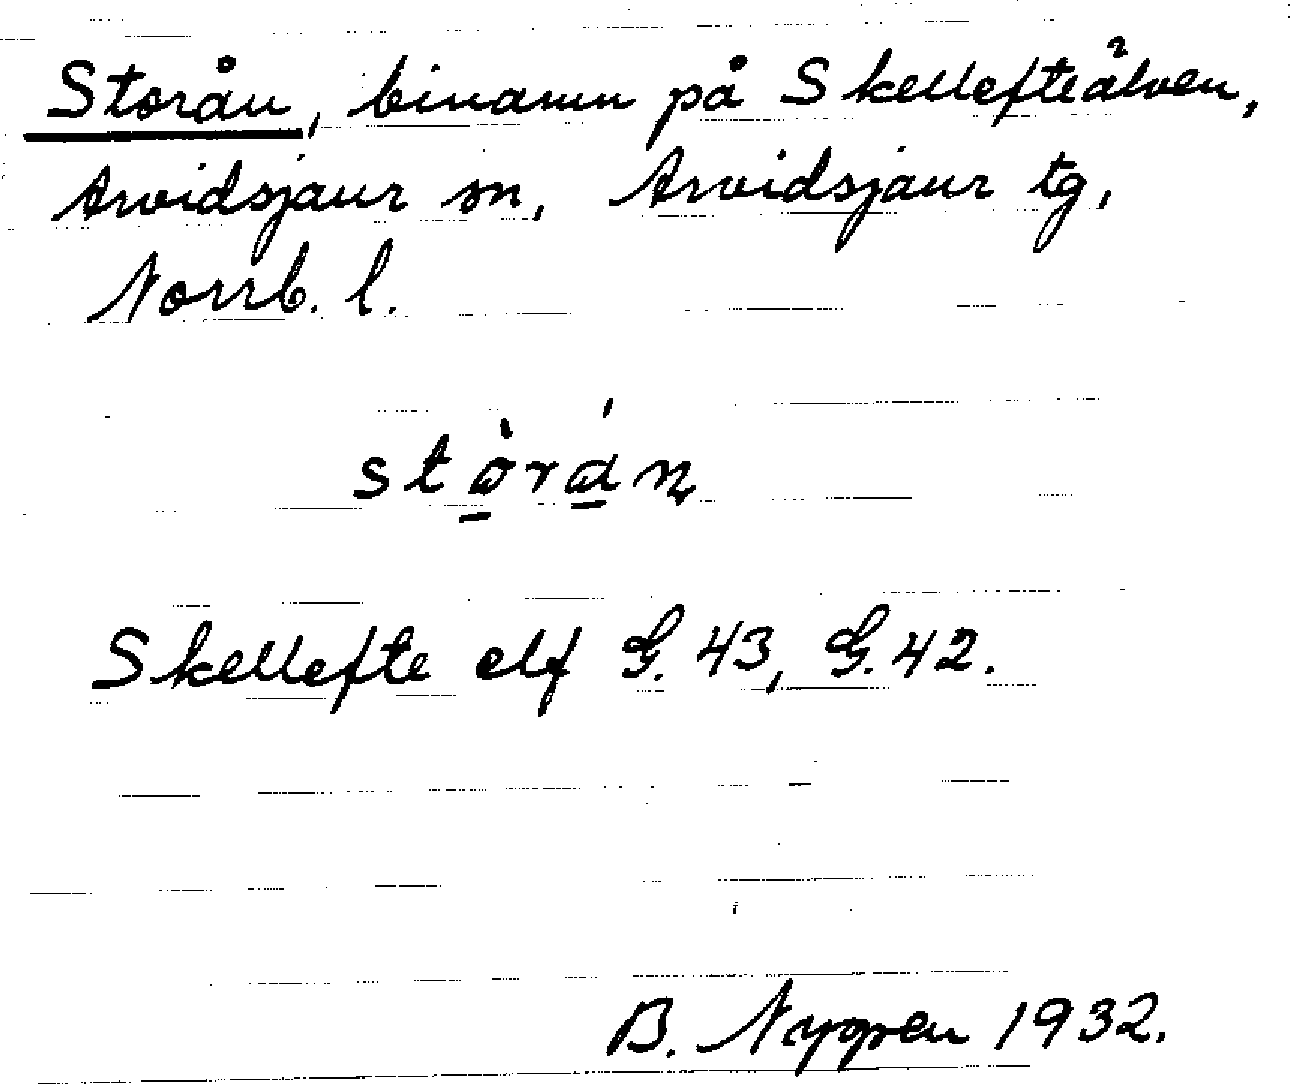 Storån, binamn på Skellefteälven,
Arvidsjaur sn, Arvidsjaur tg,
Norrb. l.
Skellefte elf G. 43, G. 42.
B. 1932.